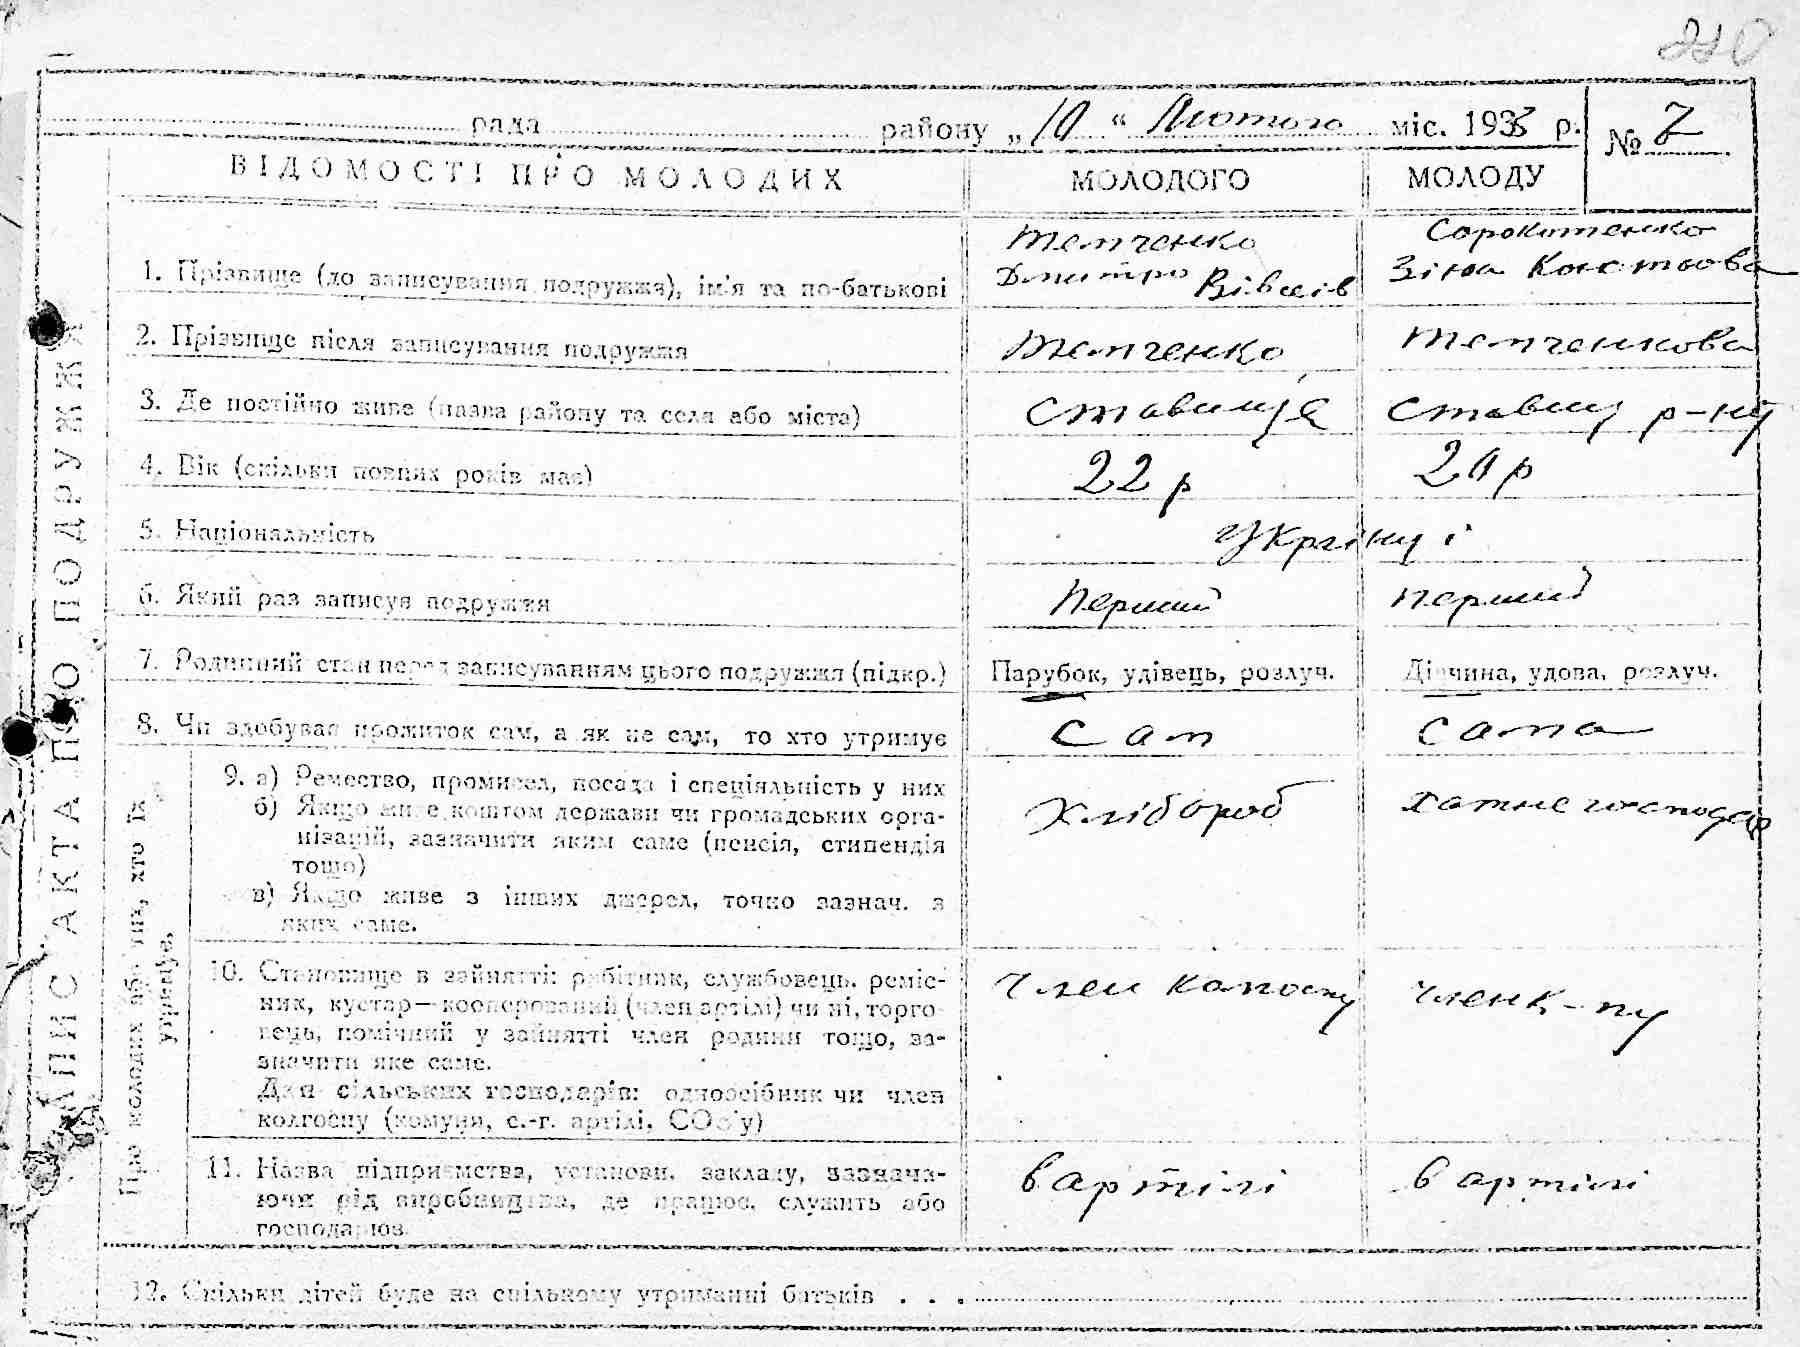 210
рада району „10“ Лютого міс. 1933 р. № 7
ВІДОМОСТІ ПРО МОЛОДИХ МОЛОДОГО МОЛОДУ
Темченко Сорокотенко
1. Прізвище (до записування подружжя), ім'я та по-батькові Дмитро Зіна
2. Прізвище після записування подружжя Темченко Темченкова
3. Де постійно живе (назва району та села або міста) Ставище Ставищ р-ну
4. Вік (скільки повних років має) 22 р 20 р
5. Національність Українці
6. Який раз записув подружжя Перший перший
7. Родинний стан перед записуванням цього подружжя (підкр.) Парубок, удівець, розлуч. Дівчина, удова, розлуч.
8. Чи здобував прожиток сам, а як не сам, то хто утримує Сам сама
9. а) Ремество, промисел, посада і спеціяльність у них Хлібороб хатнє господар
б) Якщо живе коштом держави чи громадських орга-
нізацій, зазначити яким саме (пенсія, стипендія
тощо)
в) Якщо живе з інших джерел, точно зазнач. з
яких саме.
10. Становище в зайнятті: робітник, службовець, реміс- Член член к-пу
ник, кустар—кооперований (член артілі) чи ні, торго-
вець, помічний у зайнятті член родини тощо, за-
значити яке саме.
Для сільських господарів: одноосібник чи член
колгоспу (комуни, с.-г. артілі, СОЗ'у)
11. Назва підприємства, установи, закладу, зазнача- в артілі в артілі
ючи рід виробництва, де працює, служить або
господарює.
12. Скільки дітей буде на спільному утриманні батьків . . .
ЗАПИС АКТА ПРО ПОДРУЖЖЯ
Про молодих або тих, хто їх
утримує.